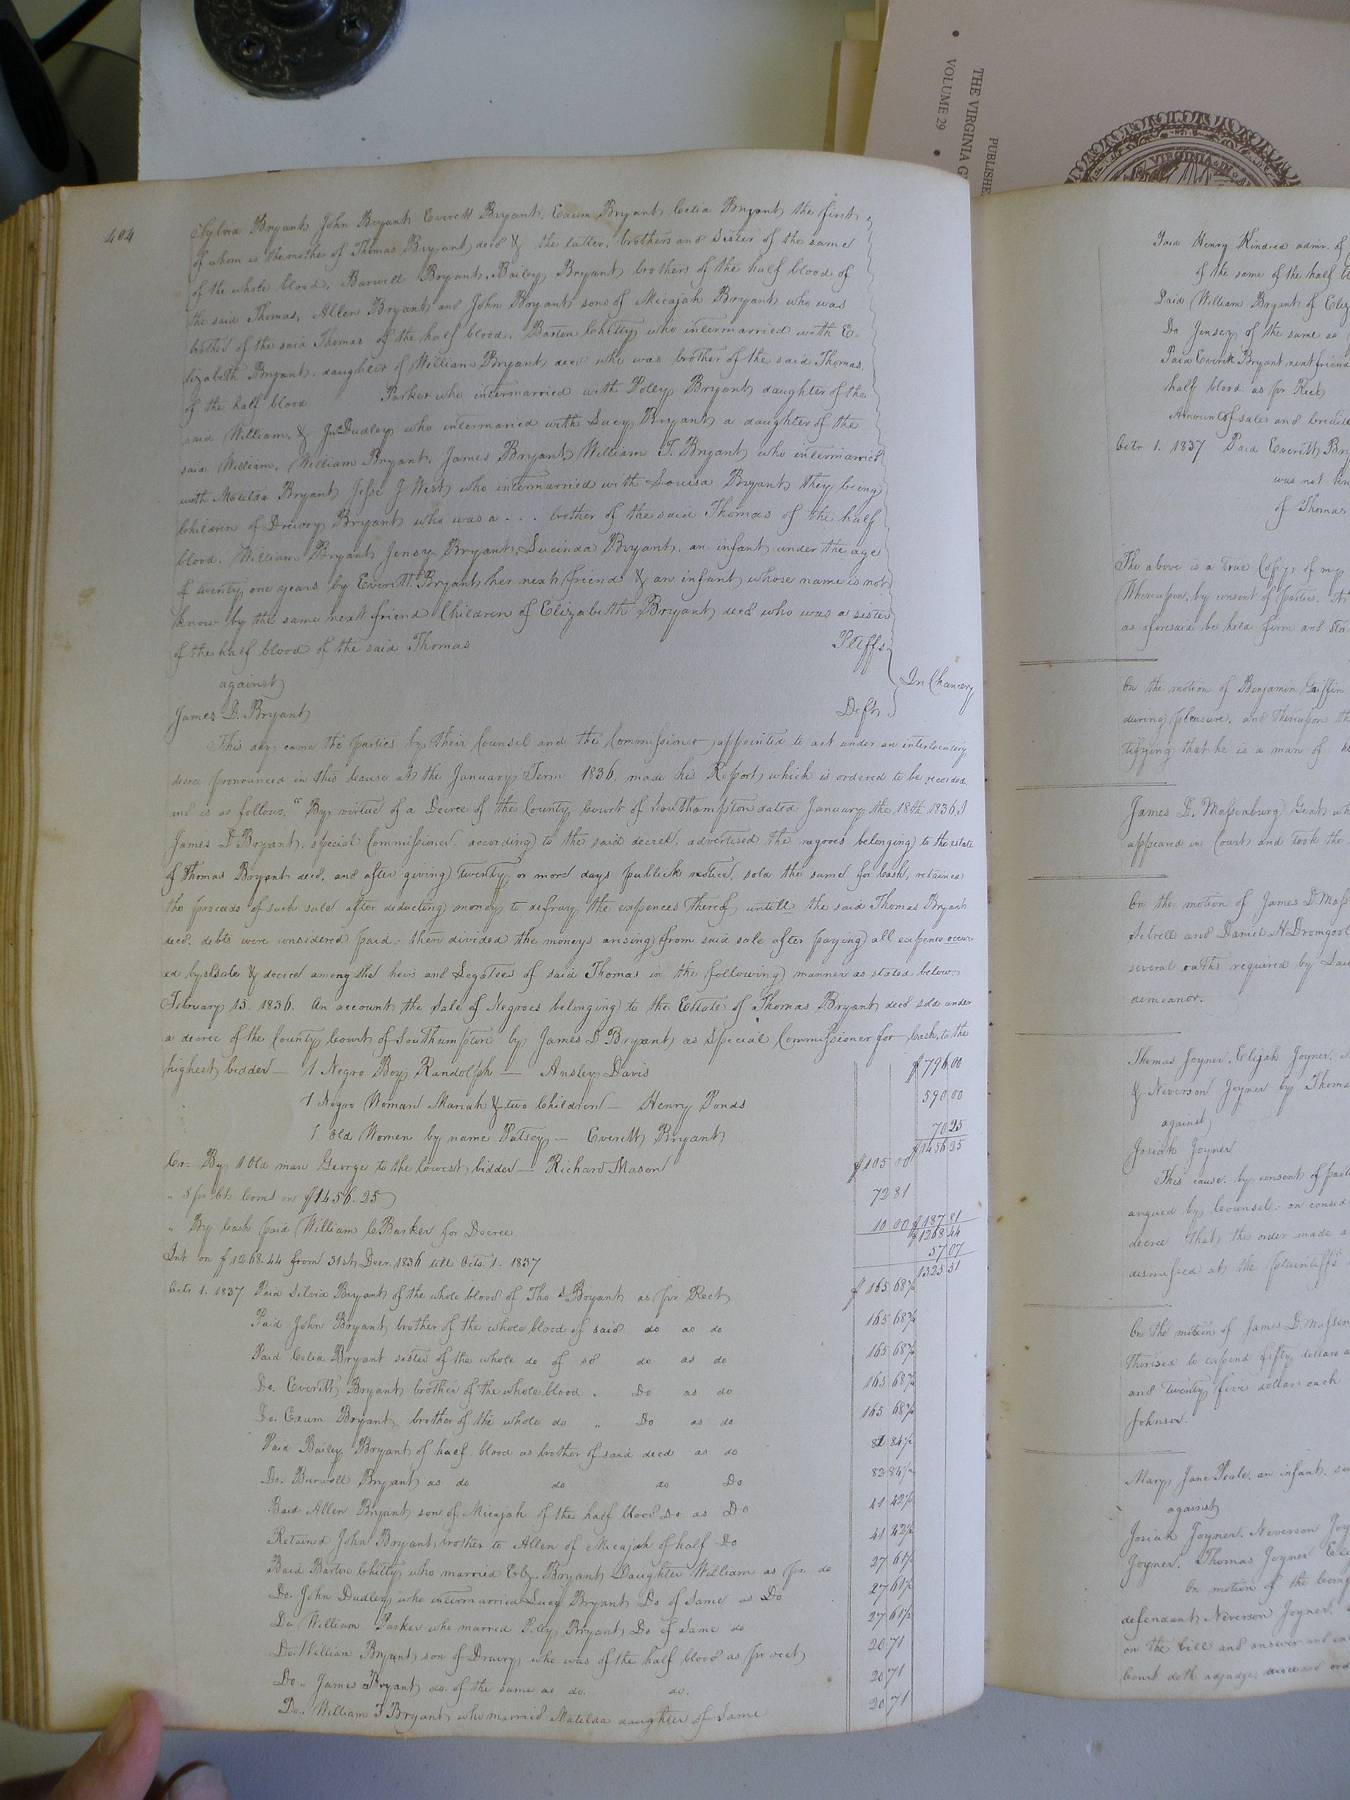 THE VIRGINIA G
VOLUME 29
PUBLISHE
VIRGINIA IN
404
Sylvia Bryant, John Bryant, Everett Bryant, Exum Bryant, Celia Bryant, the first
of whom is the mother of Thomas Bryant, decd & the latter, brothers and sister of the same
of the whole blood, Burwell Bryant, Bailey Bryant, brothers of the half blood of
the said Thomas, Allen Bryant and John Bryant, sons of Micajah Bryant, who was
brother of the said Thomas of the half blood, Barton Chitty, who intermarried with E-
lizabeth Bryant, daughter of William Bryant, decd who was brother of the said Thomas,
of the half blood Parker who intermarried with Polly Bryant, daughter of the
said William, & Jno Dudley, who intermarried with Lucy Bryant, a daughter of the
said William, William Bryant, James Bryant, William T. Bryant, who intermarried
with Matilda Bryant, Jesse J West, who intermarried with Louisa Bryant, they being
Children of Drewry Bryant who was a . . . brother of the said Thomas of the half
blood, William Bryant, Jensey Bryant, Lucinda Bryant, an infant under the age
of twenty one years by Everitt Bryant her next friend & an infant whose name is not
know by the same next friend Children of Elizabeth Bryant decd who was a sister
of the half blood of the said Thomas Pltffs
against In Chancery
James D. Bryant Deft
This day came the parties by their Counsel and the Commissioner appointed to act under an interlocutory
decree pronounced in this Cause at the January Term 1836, made his Report, which is ordered to be recorded
and is as follows, "By virtue of a Decree of the County Court of Southampton dated January the 18th 1836, I
James D Bryant, special Commissioner, according to the said decree, advertised the negroes belonging to the estate
of Thomas Bryant decd, and after giving twenty or more days publick notice, sold the same for Cash, retained
the proceeds of such sale after deducting money to defray the expences thereof, untill the said Thomas Bryant
decd. debts were considered paid, then divided the moneys arising from said sale after paying all expence occur-
ed by sale & decree among the heirs and Legatees of said Thomas in the following manner as stated below.
February 15. 1836. An account the Sale of Negroes belonging to the Estate of Thomas Bryant decd sold under
a decree of the County Court of Southampton by James D Bryant as Special Commissioner for Cash, to the
highest bidder— 1 Negro Boy Randolph — Ansley Davis $796 00
1 Negro Woman Mariah & two Children — Henry Ponds 590 00
1 Old Women by name Patsey — Everett Bryant 70 25
$1456 25
Cr. By 1 Old man George to the lowest bidder — Richard Mason $105 00
" 5 pr Ct Coms on $1456.25 72 81
" By Cash paid William C Barker for Decree 10 00 $187 81
$1268 44
Int on $1268.44 from 31st Decr. 1836 till Octr. 1. 1837 57 07
1325 51
Octr 1. 1837 Paid Silvia Bryant of the whole blood of Tho s Bryant as pr Rect $165 68 3/4
Paid John Bryant, brother of the whole blood of said do as do 165 68 3/4
Paid Celia Bryant sister of the whole do of sd do as do 165 68 3/4
Do. Everitt Bryant brother of the whole blood " Do as do 165 68 3/4
Do. Exum Bryant, brother of the whole do " Do as do 165 68 3/4
Paid Bailey Bryant of half blood as brother of said decd as do 82 84 1/2
Do. Burwell Bryant as do do do Do 82 84 1/2
Paid Allen Bryant son of Micajah of the half blood Do as Do 41 42 1/2
Retained John Bryant, brother to Allen of Micajah of half Do 41 42 1/2
Paid Barton Chitty, who married Eliz. Bryant, Daughter William as pr do 27 61 1/2
Do. John Dudley, who intermarried Lucy Bryant Do of Same as Do 27 61 1/2
Do William Parker who married Polly Bryant, Do of Same do 27 61 1/2
Do. William Bryant, son of Drewry, who was of the half blood as pr rect 20 71
Do. James Bryant do. of the same as do. do. 20 71
Do. William T Bryant, who married Matilda daughter of Same 20 71
Paid Henry Kindred admr. of
of the same of the half
Paid William Bryant of Eliz
Do Jensey of the same as
Paid Everett Bryant next friend
half blood as pr Rect
Amount of sales and
Octr 1. 1837 Paid Everitt Bry
was not
of Thomas
The above is a true Copy of my
Whereupon, by consent of parties,
as aforesaid be held firm and sta
On the motion of Benjamin Griffin
during pleasure, and thereupon th
tifying that he is a man of
James D. Massenburg Gent, wh
appeared in Court and took the
On the motion of James D Mass
and Daniel H Dromgool
several oaths required by Law
demeanor.
Thomas Joyner, Elijah Joyner,
& Neverson Joyner by Thoma
against
Josiah Joyner
This cause, by consent of part
argued by Counsel: on consid
decree that the order made
dismissed at the plaintiffs
On the motion of James D. Massen
thorised to expend fifty dollars
and twenty five dollars each
Johnson.
Mary Jane Peale, an infant,
against
Josiah Joyner, Neverson Joy
Joyner, Thomas Joyner
On motion of the
defendant, Neverson Joyner,
on the bill and answer and
Court doth adjudge, decree and ord